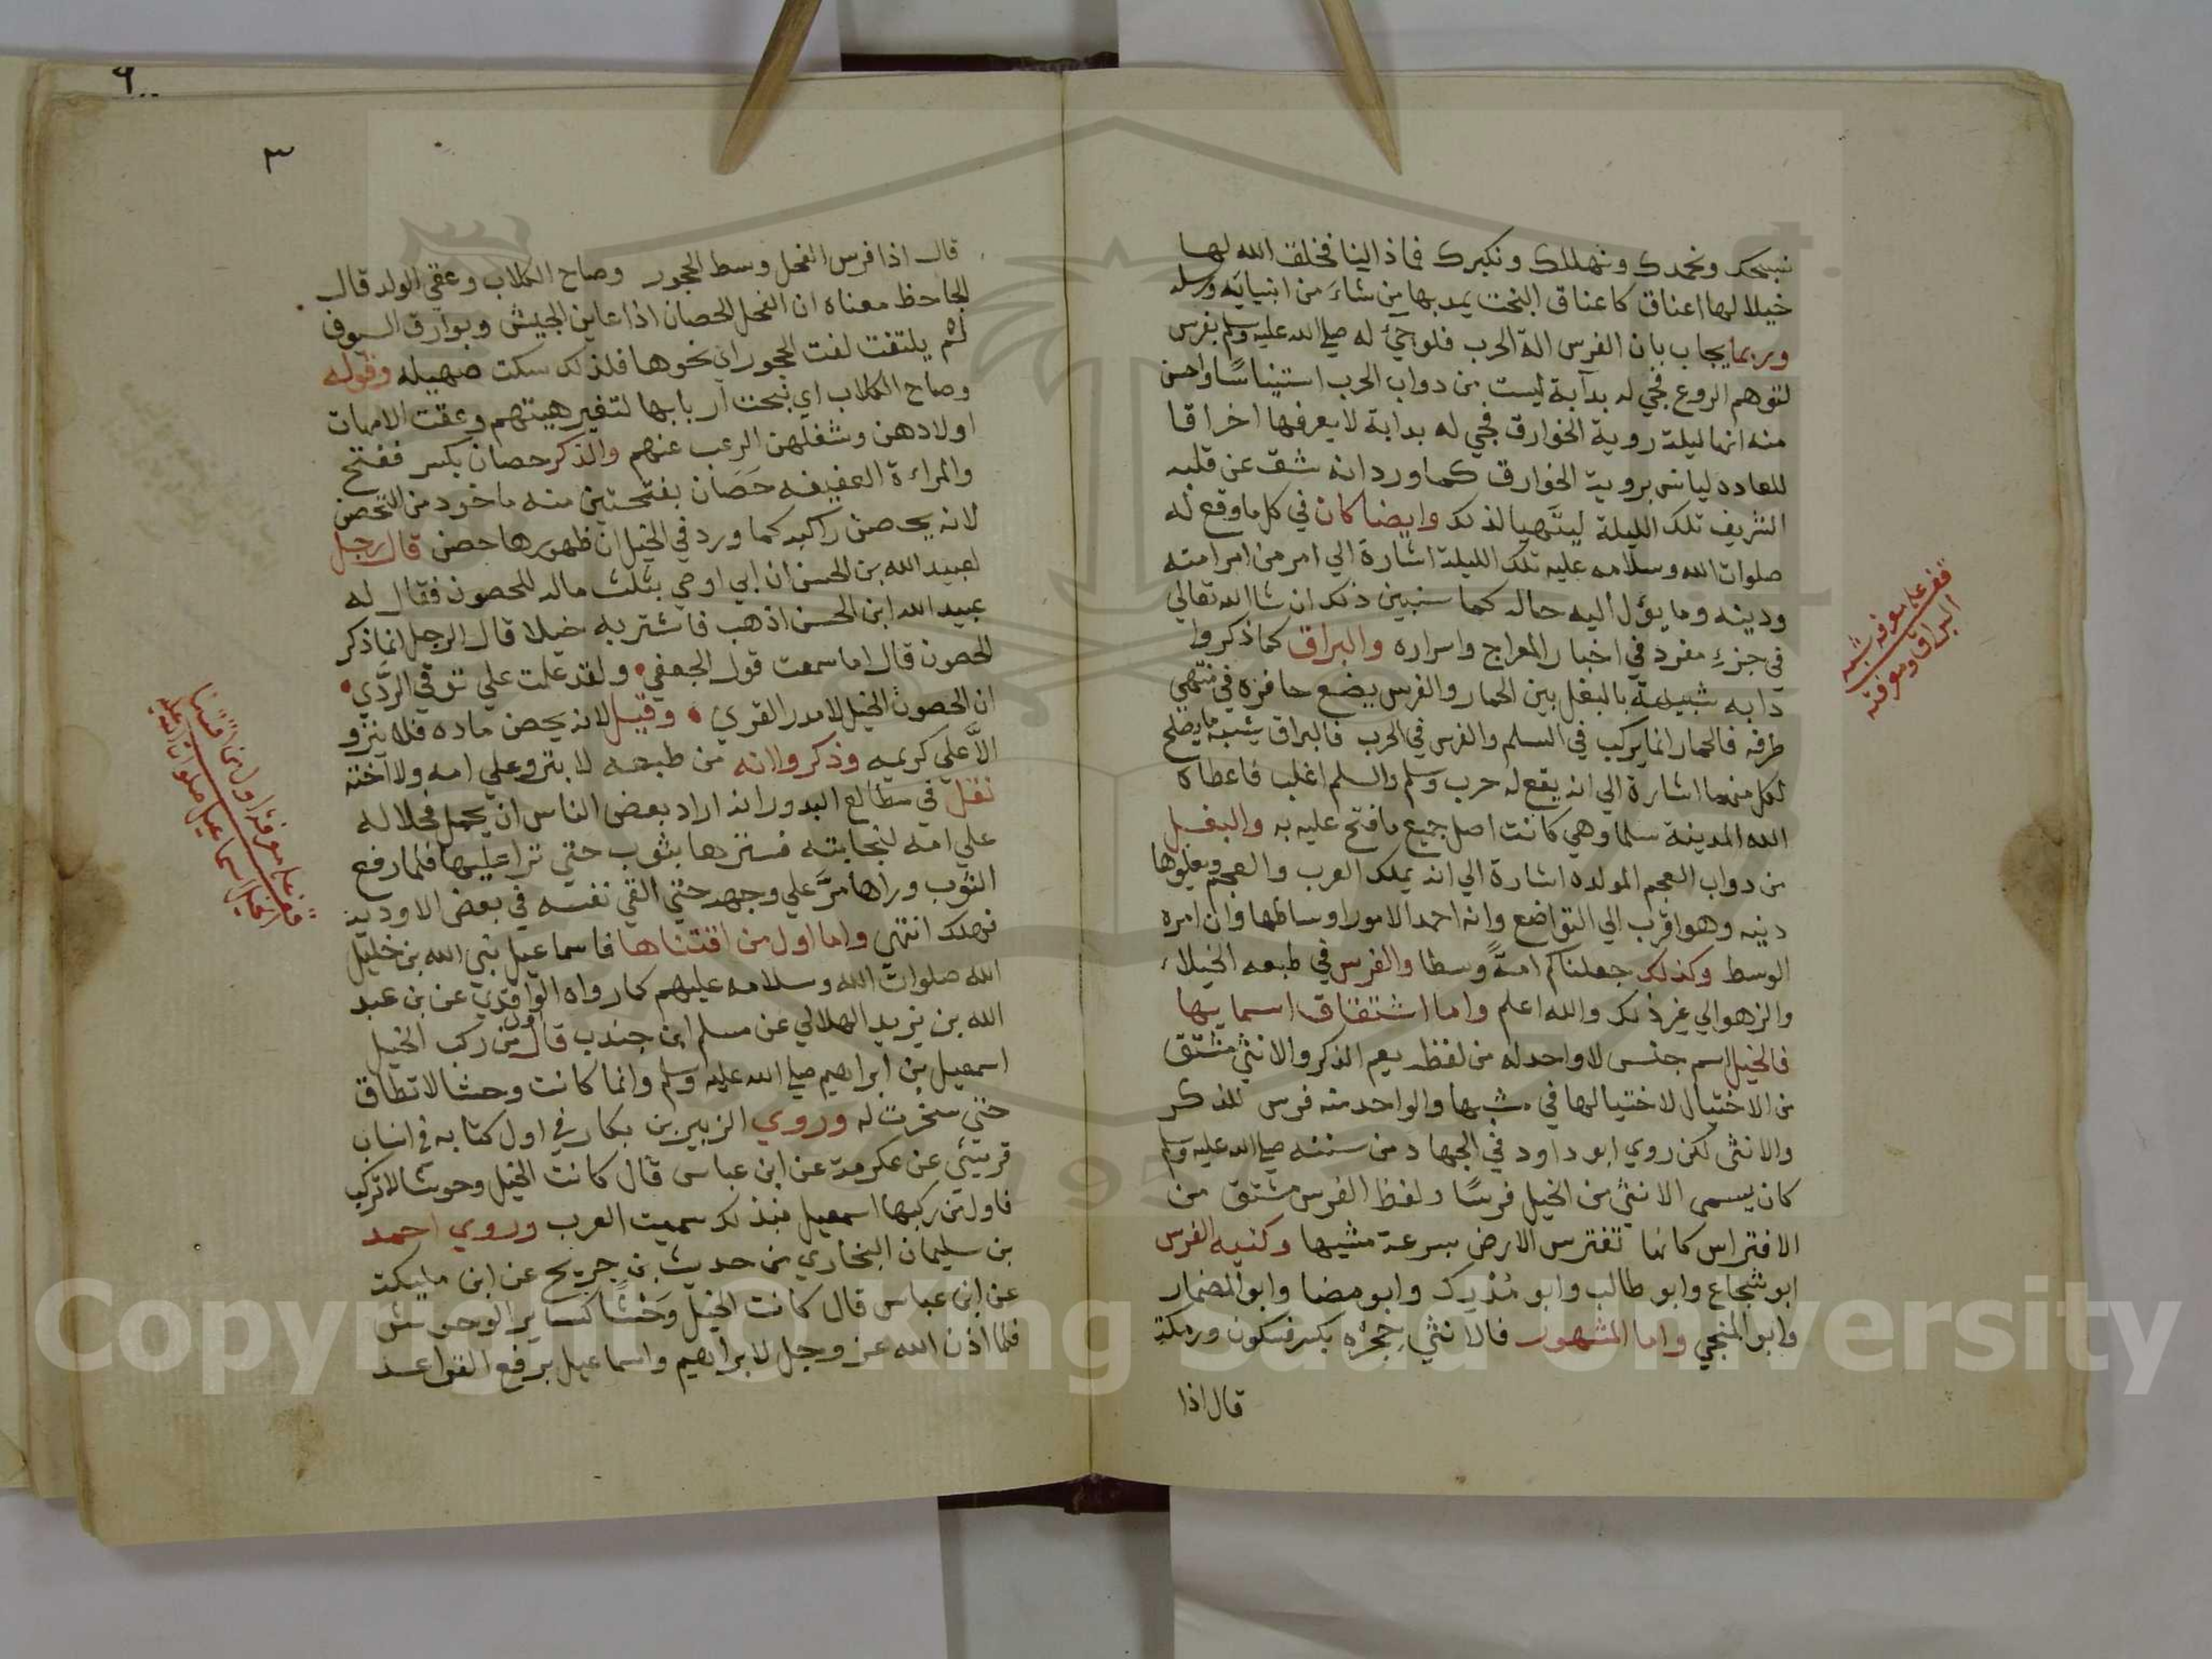 نسبحك ونحمدك ونهللك ونكبرك فماذا لينا فخلق الله لها
خيلا لها اعناق كاعناق البخت يمد بها من شاء من انبيايه ورسله
وربما يجاب بان الفرس الة الحرب فلو جئ له صلي الله عليه وسلم بفرس
لتوهم الروع فجي له بدآبة ليست من دواب الحرب استيناسًا واحسن
منه انها ليلة روية الخوارق فجي له بدابة لا يعرفها اخراقا
للعاده ليانس بروية الخوارق كما ورد انه شق عن قلبه
الشريف تلك الليلة ليتهيا لذلك وايضا كان في كل ما وقع له
صلوات الله وسلامه عليه تلك الليلة اشارة الي امر من امر امته
ودينه وما يؤل اليه حاله كما سنبين ذلك ان شا الله تعالي
في جزء مفرد في اخبار المعراج واسراره والبراق كما ذكروا
دابه شبيهة بالبغل بين الحمار والفرس يضع حافره في منتهي
طرفه فالحمار انما يركب في السلم والفرس في الحرب فالبراق يشبه ما يصلح
لكل منهما اشارة الي انه يقع له حرب وسلم والسلم اغلب فاعطاه
الله المدينة سلما وهي كانت اصل جميع ما فتح عليه به والبغل
من دواب العجم المولده اشارة الي انه يملك العرب والعجم ويعلوها
دينه وهو اقرب الي التواضع وانه احمد الامور اوساطها وان امره
الوسط وكذلك جعلناكم امةً وسطا والفرس في طبعه الخيلاء
والزهو الي غير ذلك والله اعلم واما اشتقاق اسمايها
فالخيل اسم جنس لا واحد له من لفظه يعم الذكر والانثي مشتق
من الاختيال لاختيالها في مشيها والواحد منه فرس للذكر
والانثى لكن روي ابو داود في الجهاد من سننه صلي الله عليه وسلم
كان يسمى الانثي من الخيل فرسًا ولفظ الفرس مشتق من
الافتراس كانها تفترس الارض بسرعة مشيها وكنيه الفرس
ابو شجاع وابو طالب وابو مُدْرِك وابو مضا وابو المضمار
وابو المنجي واما المشهور فالانثي حِجْرُه بكسر فسكون ورمكة
قال اذا
قف علي معرفه شبه
البراق ومعرفته
٣
قال اذا فرس الفحل وسط الحجور وصاح الكلاب وعقي الولد قال
الجاحظ معناه ان الفحل الحصان اذا عاين الجيش وبوارق السيوف
لم يلتفت لفت الحجور اي نحوها فلذلك سكت صهيله وقوله
وصاح الكلاب اي نبحت اربابها لتغير هيئتهم وعقت الامهات
اولادهن وشغلهن الرعب عنهم والذكر حصان بكسر ففتح
والمراءة العفيفه حَصَان بفتحتين منه ماخود من التحصن
لانه يحصن راكبه كما ورد في الخيل ان ظهورها حصن قال رجل
لعبيد الله بن الحسن ان ابي اوصي بثلث ماله للحصون فقال له
عبيد الله ابن الحسن اذهب فاشتر به خيلا قال الرجل انما ذكر
الحصون قال اما سمعت قول الجعفي ولقد علمت علي توقي الرَّدَي
ان الحصون الخيل لا مدر القري وقيل لانه يحصن ماده فلا ينزو
الاَّ علي كريمه وذكروا انه من طبعه لا ينزو علي امه ولا اخته
نقل في مطالع البدور انه اراد بعض الناس ان يحمل فحلا له
علي امه لنجابته فسترها بثوب حتي نزا عليها فلما رفع
الثوب وراها مرَّ علي وجهه حتي القي نفسه في بعض الاودية
فهلك انتهي واما اول من اقتناها فاسماعيل نبي الله بن خليل
الله صلوات الله وسلامه عليهم كما رواه الواقدي عن بن عبد
الله بن يزيد الهلالي عن مسلم ابن جندب قال اول من ركب الخيل
اسمعيل بن ابراهيم صلي الله عليه وسلم وانما كانت وحشا لا تطاق
حتي سخرت له وروي الزبير بن بكار في اول كتابه في انساب
قريش عن عكرمة عن ابن عباس قال كانت الخيل وحوشا لا تركب
فاول من ركبها اسمعيل فبذلك سميت العرب وروي احمد
بن سليمان البخاري من حديث بن جريج عن ابن مليكة
عن ابن عباس قال كانت الخيل وَحْشًا كساير الوحوش
فلما اذن الله عز وجل لابراهيم واسماعيل برفع القواعد
قف علي معرفة اول من اقتنا
الخيل اسماعيل صلوات الله عليه
Copyright © King Saud University
1957